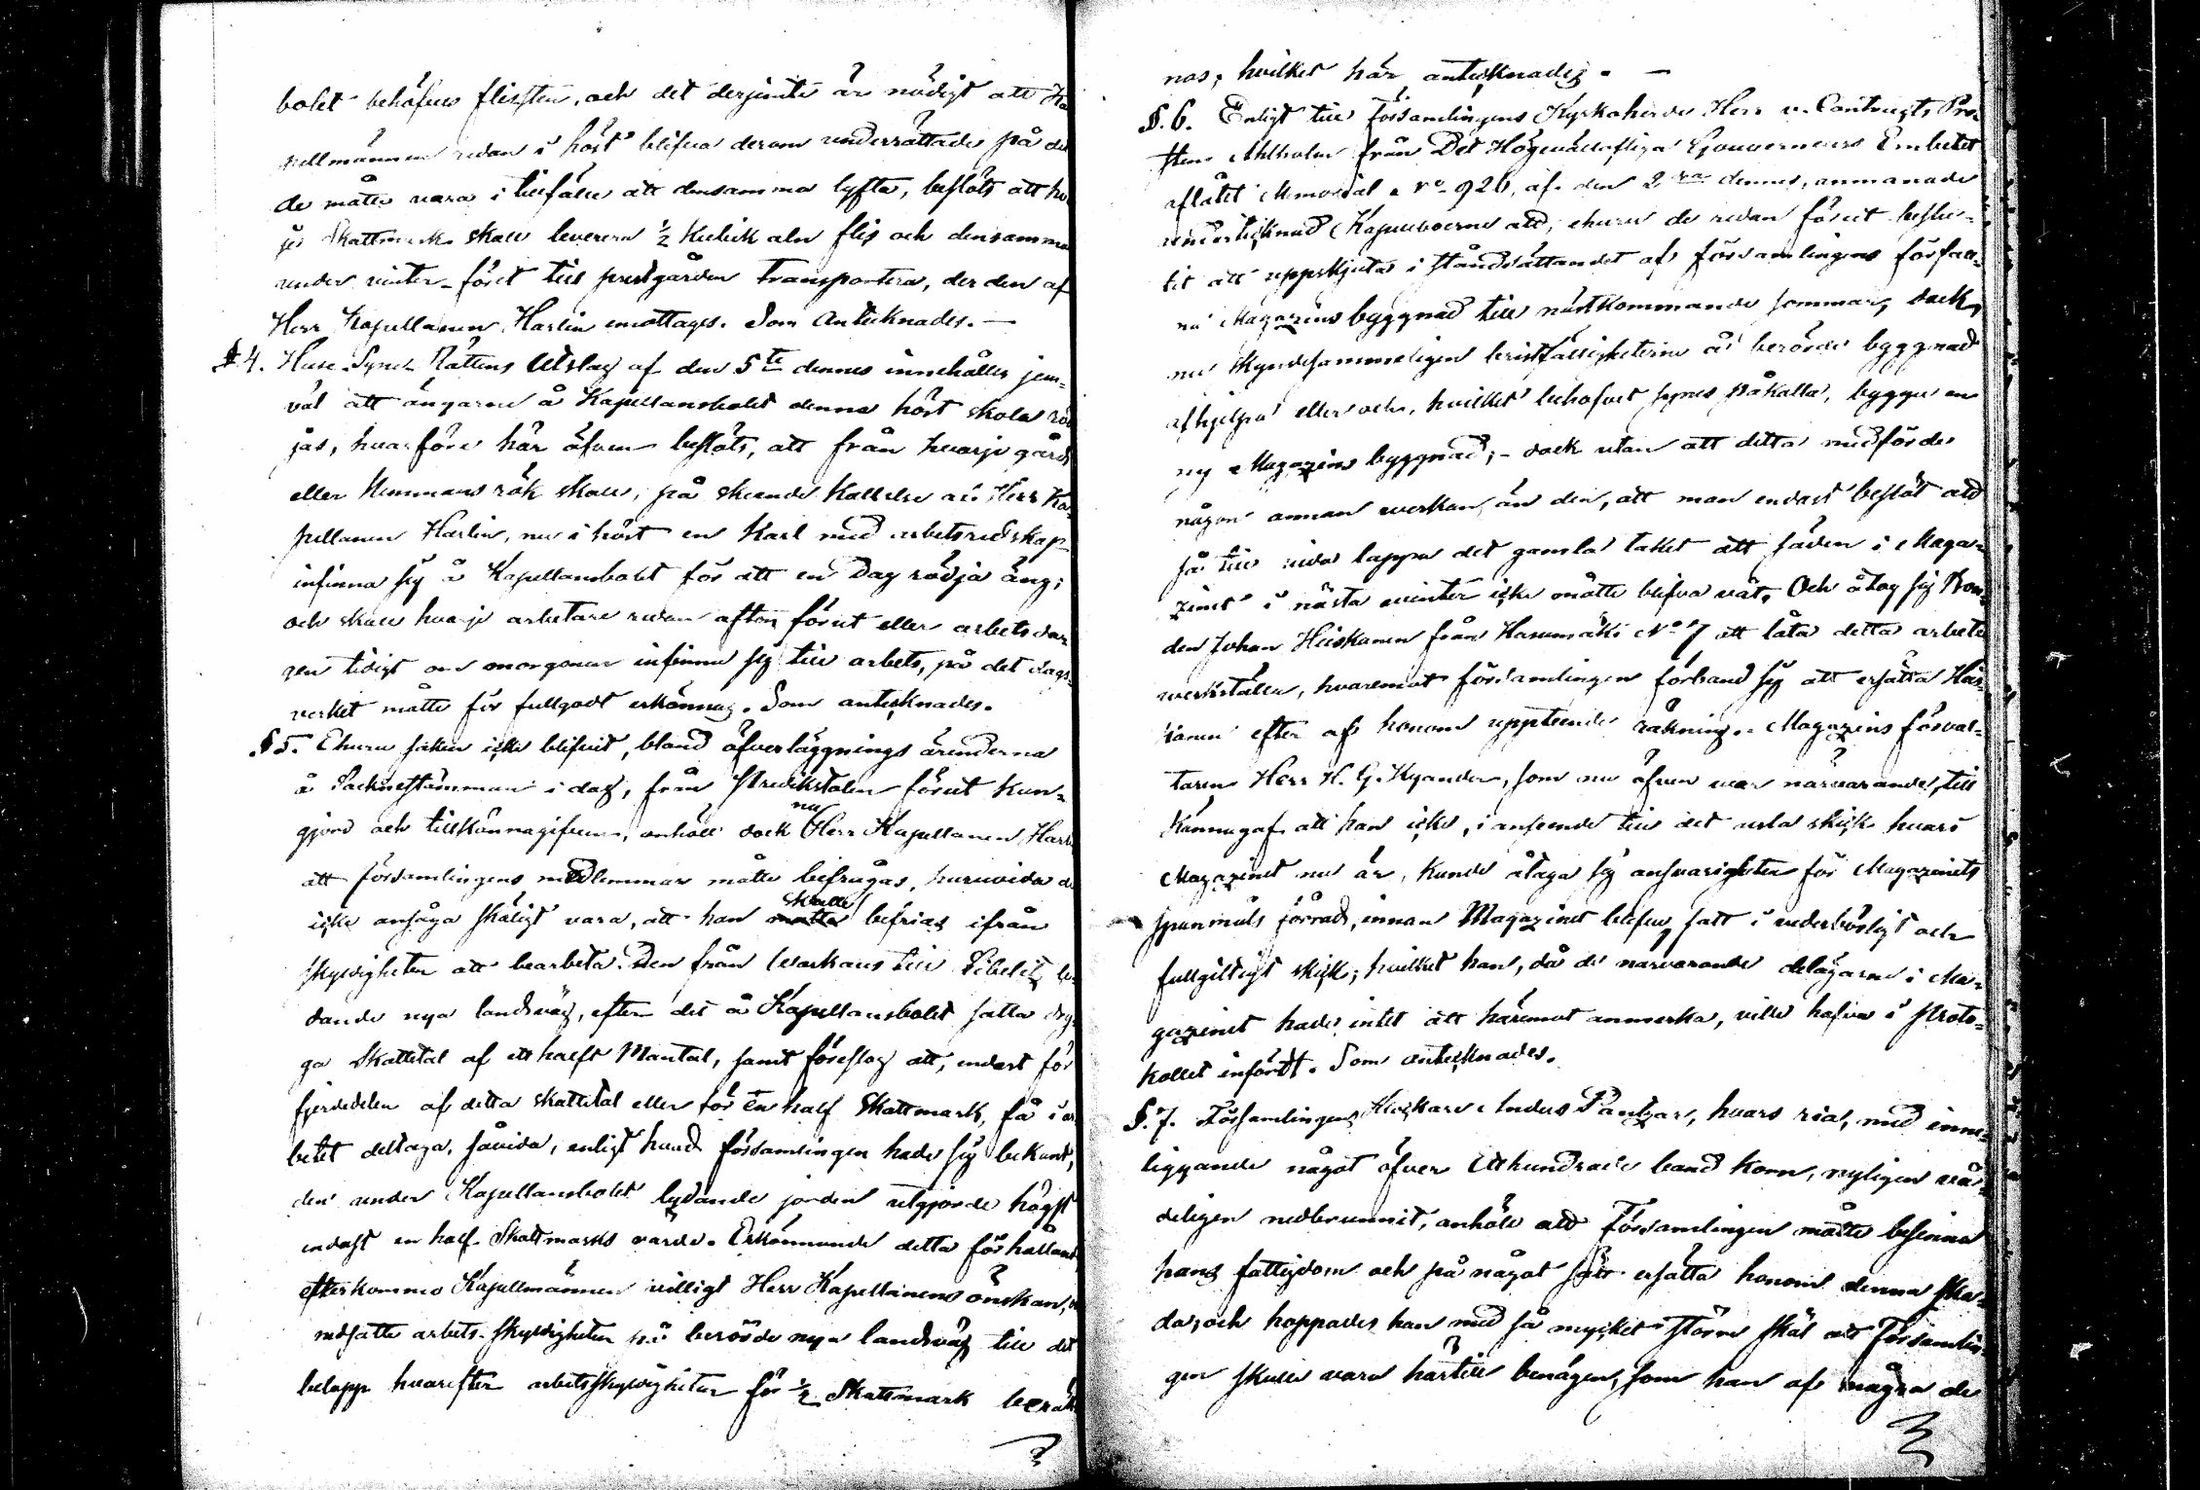 bolet behöfves flisster, och det derjemte är nödigt att Ka
pellmännen redan i höst blifva derom underrättade på det
de måtte vara i tillfälle att densamma lyfta, beslöts att hvar
je Skattmark skall leverera ½ Kubik aln flis och densamma
under vinter-föret till prestgården transportera, der den af
Herr Kapellanen Harlin emottages. Som Antecknades. —
§ 4. Huse-Syns Rättens Utslag af den 5te dennes innehåller jem-
väl att ängarne å Kapellansbolet denna höst skola röd
jas, hvarföre här äfven beslöts, att från hvarje gård
eller Hemmans rök skall, på skeende Kallelse af Herr Ka-
pellanen Harlin, nu i höst en Karl med arbetsredskap
infinna sig å Kapellansbolet för att en Dag rödja äng;
och skall hvarje arbetare redan afton förut eller arbetsda-
gen tidigt om morgonen infinna sig till arbets, på det dags-
verket måtte för fullgodt erkännas. Som antecknades.
§ 5. Ehuru saken icke blifvit, bland öfverläggnings ärenderna
å Socknestämman i dag, från Predikstolen förut kun-
gjord och tillkännagifven, anhöll dock nu Herr Kapellanen Harlin
att församlingens medlemmar måtte befrågas, huruvida de
icke ansåga skäligt vara, att han skulle befrias ifrån
skyldigheten att bearbeta Den från Warkaus till Libelitz le-
dande nya landsväg, efter det å Kapellansbolet satta dryg
ga Skattetal af ett halft Mantal, samt föreslog att, endast för
fjerdedelen af detta skattetal eller för en half Skattmark, få i ar
betet deltaga, såvida, enligt hvad församlingen hade sig bekant,
den under Kapellansbolet lydande jorden utgjorde högst
endast en half Skattmarks värde. Erkännande detta förhållande
efterkommo Kapellmännen villigt Herr Kapellanens önskan, och
nedsatte arbets-skyldigheten på berörde nya landsväg till det
belopp hvarefter arbetsskyldigheten för ½ Skattmark beräk
nas; hvilket här antecknades. —
§. 6. Enligt till Församlingens Kyrkoherde Herr v. Contracts Pro-
sten Ahlholm från Det Högvällofliga Gouverneurs Embetet
aflåtit Memorial No 926, af den 2dra dennes, anmanade
undertecknad Kapellboerne att, ehuru de redan förut beslu-
tit att uppskjuta i ståndsättandet af församlingens förfall-
na Magazins byggnad till nästkommande sommar, dock,
nu skyndesammeligen bristfälligheterne å berörde byggnad
afhjelpa eller och, hvilket behofvet synes påkalla, bygga en
ny Magazins byggnad; – dock utan att detta medförde
någon annan verkan, än den, att man endast beslöt att
så till vida lappa det gamla taket att säden i Maga-
zinet i nästa vinter icke måtte blifva våt. Och åtog sig Bon-
den Johan Heiskanen från Harumäki No 7 att låta detta arbete
verkställa, hvaremot församlingen förband sig att ersätta Heis-
kanen efter af honom uppteende räkning. Magazins förval-
taren Herr H. G. Kyander, som nu äfven var närvarande, till
kännagaf att han icke, i anseende till det usla skick hvari
Magazinet nu är, kunde åtaga sig ansvarigheten för Magazinets
spanmåls förråd, innan Magazinet blifver satt i vederbörligt och
fullgiltigt skick; hvilket han, då de närvarande delägarne i Ma-
gazinet hade intet att häremot anmerka, ville hafva i Proto-
kollet infördt. Som antecknades.
§. 7. Församlingens Klockare Anders Pantzar, hvars ria, med inne-
liggande något öfver Etthundrade band korn, nyligen vå-
deligen nedbrunnit, anhöll att Församlingen måtte besinna
hans fattigdom och på något sätt ersätta honom denna ska-
da, och hoppades han med så mycket större skäl att Församlin-
gen skulle vara härtill benägen, som han af några de